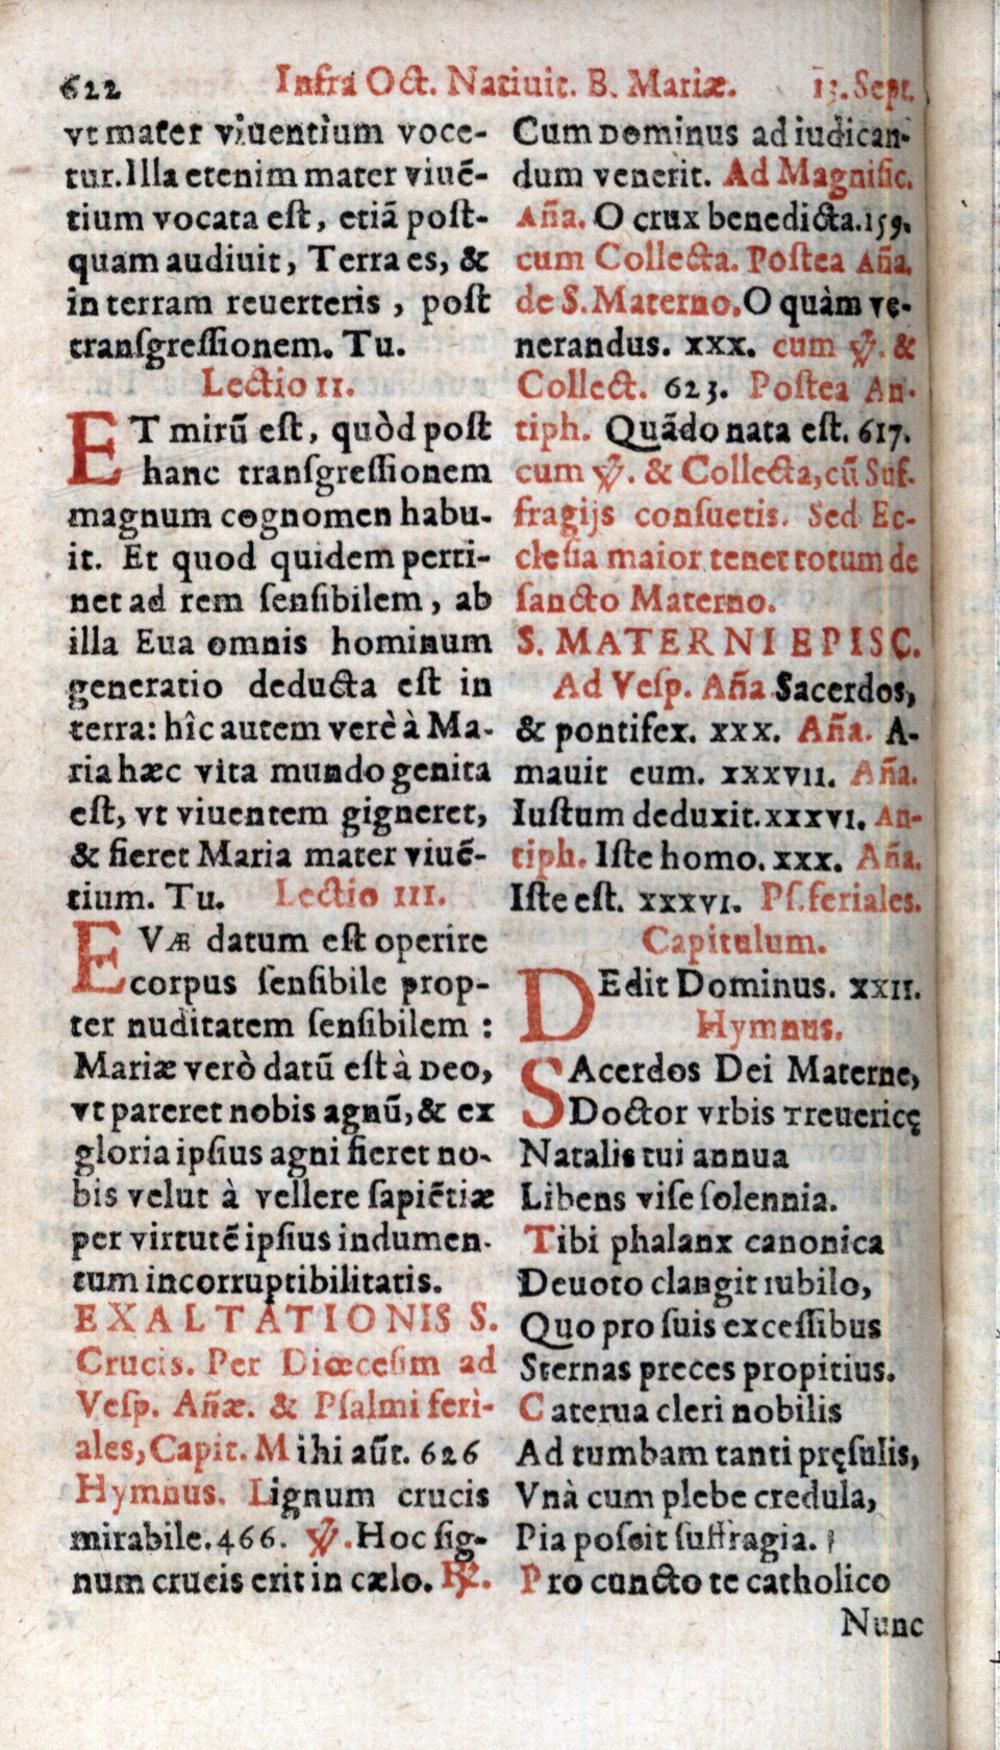 622 Infra Oct. Natiuit. B. Mariæ. 13. Sept.
vt mater viuentium voce-
tur. Illa etenim mater viuẽ-
tium vocata eſt, etiã poſt-
quam audiuit, Terra es, &
in terram reuerteris, poſt
tranſgreſſionem. Tu.
Lectio II.
ET mirũ eſt, quòd poſt
hanc tranſgreſſionem
magnum cognomen habu-
it. Et quod quidem perti-
net ad rem ſenſibilem, ab
illa Eua omnis hominum
generatio deducta eſt in
terra: hîc autem verè à Ma-
ria hæc vita mundo genita
eſt, vt viuentem gigneret,
& fieret Maria mater viuẽ-
tium. Tu. Lectio III.
EVÆ datum eſt operire
corpus ſenſibile prop-
ter nuditatem ſenſibilem :
Mariæ verò datũ eſt à Deo,
vt pareret nobis agnũ, & ex
gloria ipſius agni fieret no-
bis velut à vellere ſapiẽtiæ
per virtutẽ ipſius indumen-
tum incorruptibilitatis.
EXALTATIONIS S.
Crucis. Per Diœceſim ad
Veſp. Añæ. & Pſalmi feri-
ales, Capit. Mihi aũt. 626
Hymnus. Lignum crucis
mirabile. 466. ℣. Hoc ſig-
num crucis erit in cælo. ℟.
Cum Dominus ad iudican-
dum venerit. Ad Magnific.
Aña. O crux benedicta. 159.
cum Collecta. Poſtea Aña.
de S. Materno. O quàm ve-
nerandus. xxx. cum ℣. &
Collect. 623. Poſtea An-
tiph. Quãdo nata eſt. 617.
cum ℣. & Collecta, cũ Suf-
fragijs conſuetis. Sed Ec-
cleſia maior tenet totum de
ſancto Materno.
S. MATERNI EPISC.
Ad Veſp. Aña Sacerdos,
& pontifex. xxx. Aña. A-
mauit eum. xxxvii. Aña.
Iuſtum deduxit. xxxvi. An-
tiph. Iſte homo. xxx. Aña.
Iſte eſt. xxxvi. Pſ. feriales.
Capitulum.
DEdit Dominus. xxii.
Hymnus.
SAcerdos Dei Materne,
Doctor vrbis Treuericę
Natalis tui annua
Libens viſe ſolennia.
Tibi phalanx canonica
Deuoto clangit iubilo,
Quo pro ſuis exceſſibus
Sternas preces propitius.
Caterua cleri nobilis
Ad tumbam tanti pręſulis,
Vnà cum plebe credula,
Pia poſcit ſuffragia.
Pro cuncto te catholico
Nunc